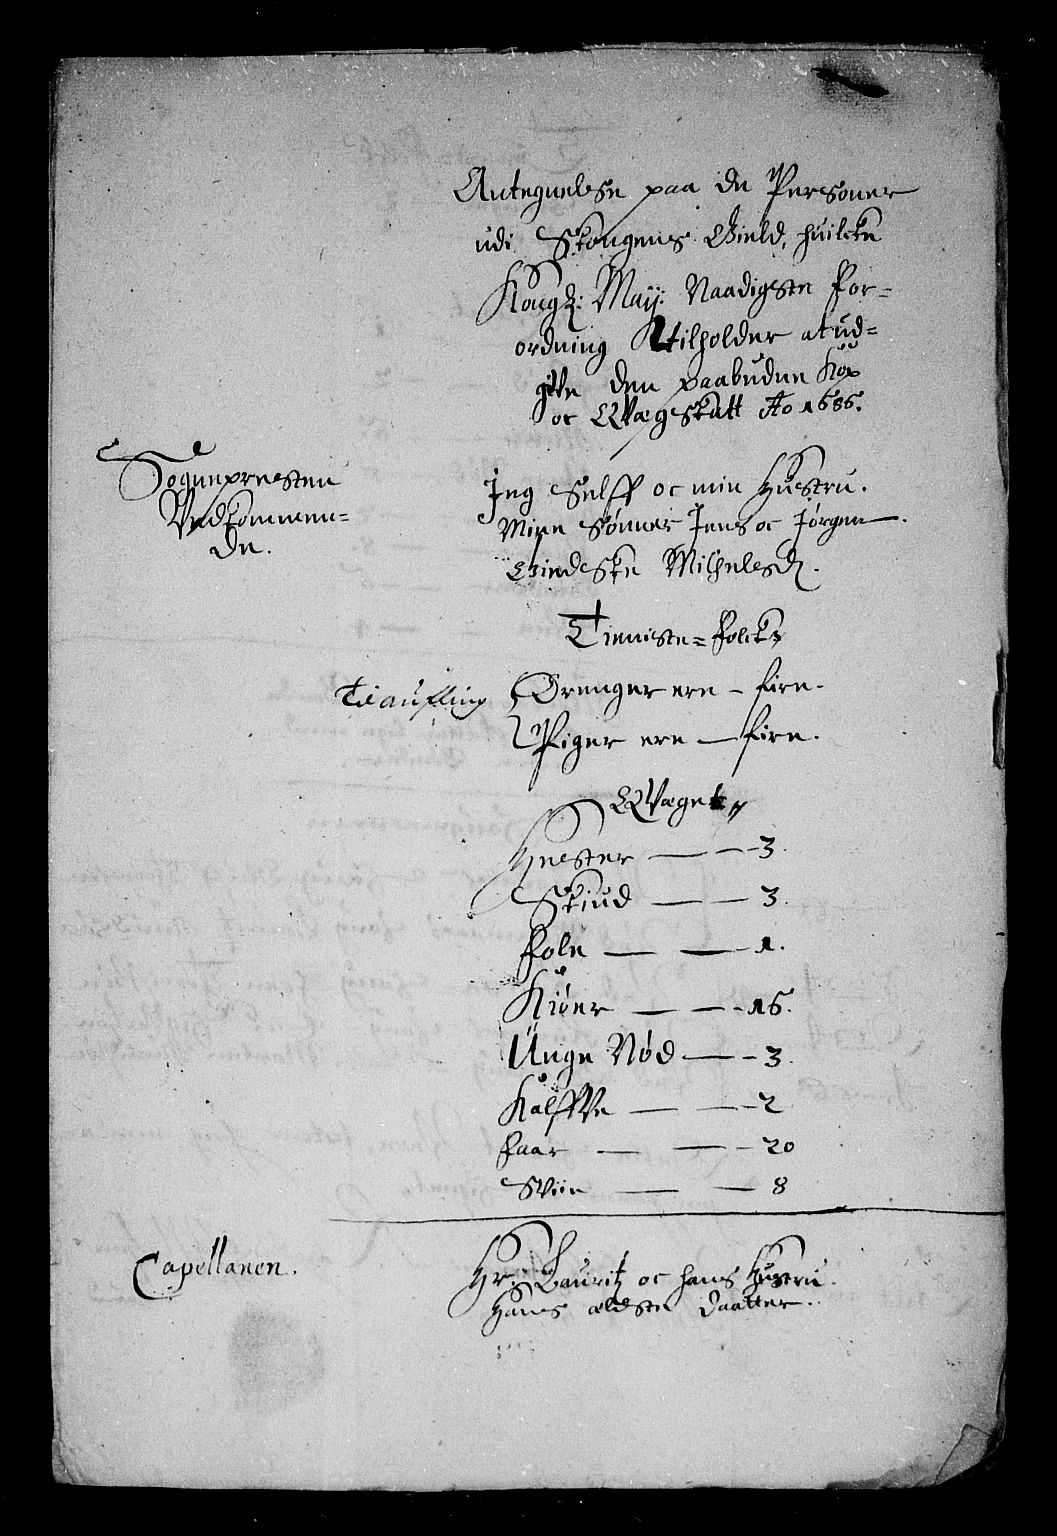 Antegnelse paa de Personer
udi Skongens Gield, huilcke
Kongl: May: Naadigste For-
ordning tilholder at ud-
giVe den paabudne Kop
oc QVægskatt Ao 1686.
Sognepresten
Vedkommen-
de.
Jeg Selff oc min Hustru.
Mine Sønner Jens oc Jørgen
Giedske Michelsd.
Tieniste-Folck
Drenger ere - fire.
Piger ere - fire.
QVæget
Hester — — 3.
Skiud — — 3.
Fole — — 1.
Kiøer — — 16.
Unge Nød — — 3.
KalffVe — — 2
Faar — — 20
SViin — — 8
Capellanen.
Hr: Lauritz oc hans Hustru.
Hans ældste Daatter.